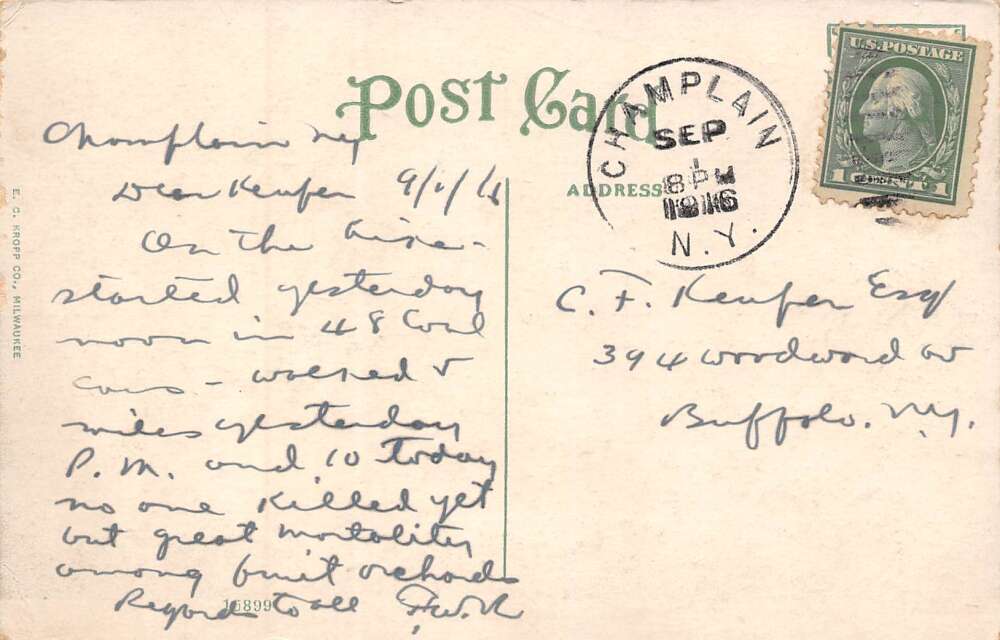 POST CARD
ADDRESS
U.S. POSTAGE
1 CENTS 1
CHAMPLAIN
SEP
1
8 PM
1916
N.Y.
Champlain NY
Dear Keufer 9/1/16
On the hike -
started yesterday
noon in 48 Coal
Cars - walked 5
miles yesterday
P.M. and 10 today
no one killed yet
but great mortality
among fruit orchards
Regards to all F.W.R
C. F. Keufer Esq
394 Woodward av
Buffalo. N.Y.
E. C. KROPP CO., MILWAUKEE
15899